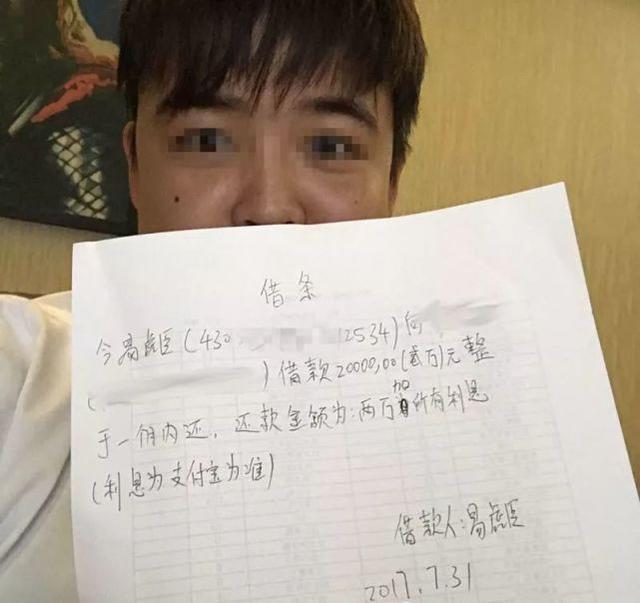 借条
今易虎臣(430 12534)向
( )借款20000,00(贰万)元整
于一个月内还,还款金额为:两万加所有利息
(利息为支付宝为准)
借款人:易虎臣
2017.7.31